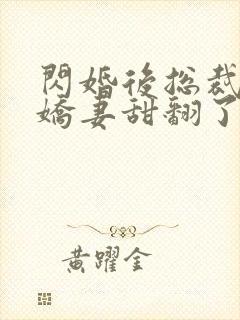 閃婚後总裁
嬌妻甜翻了
黃躍金